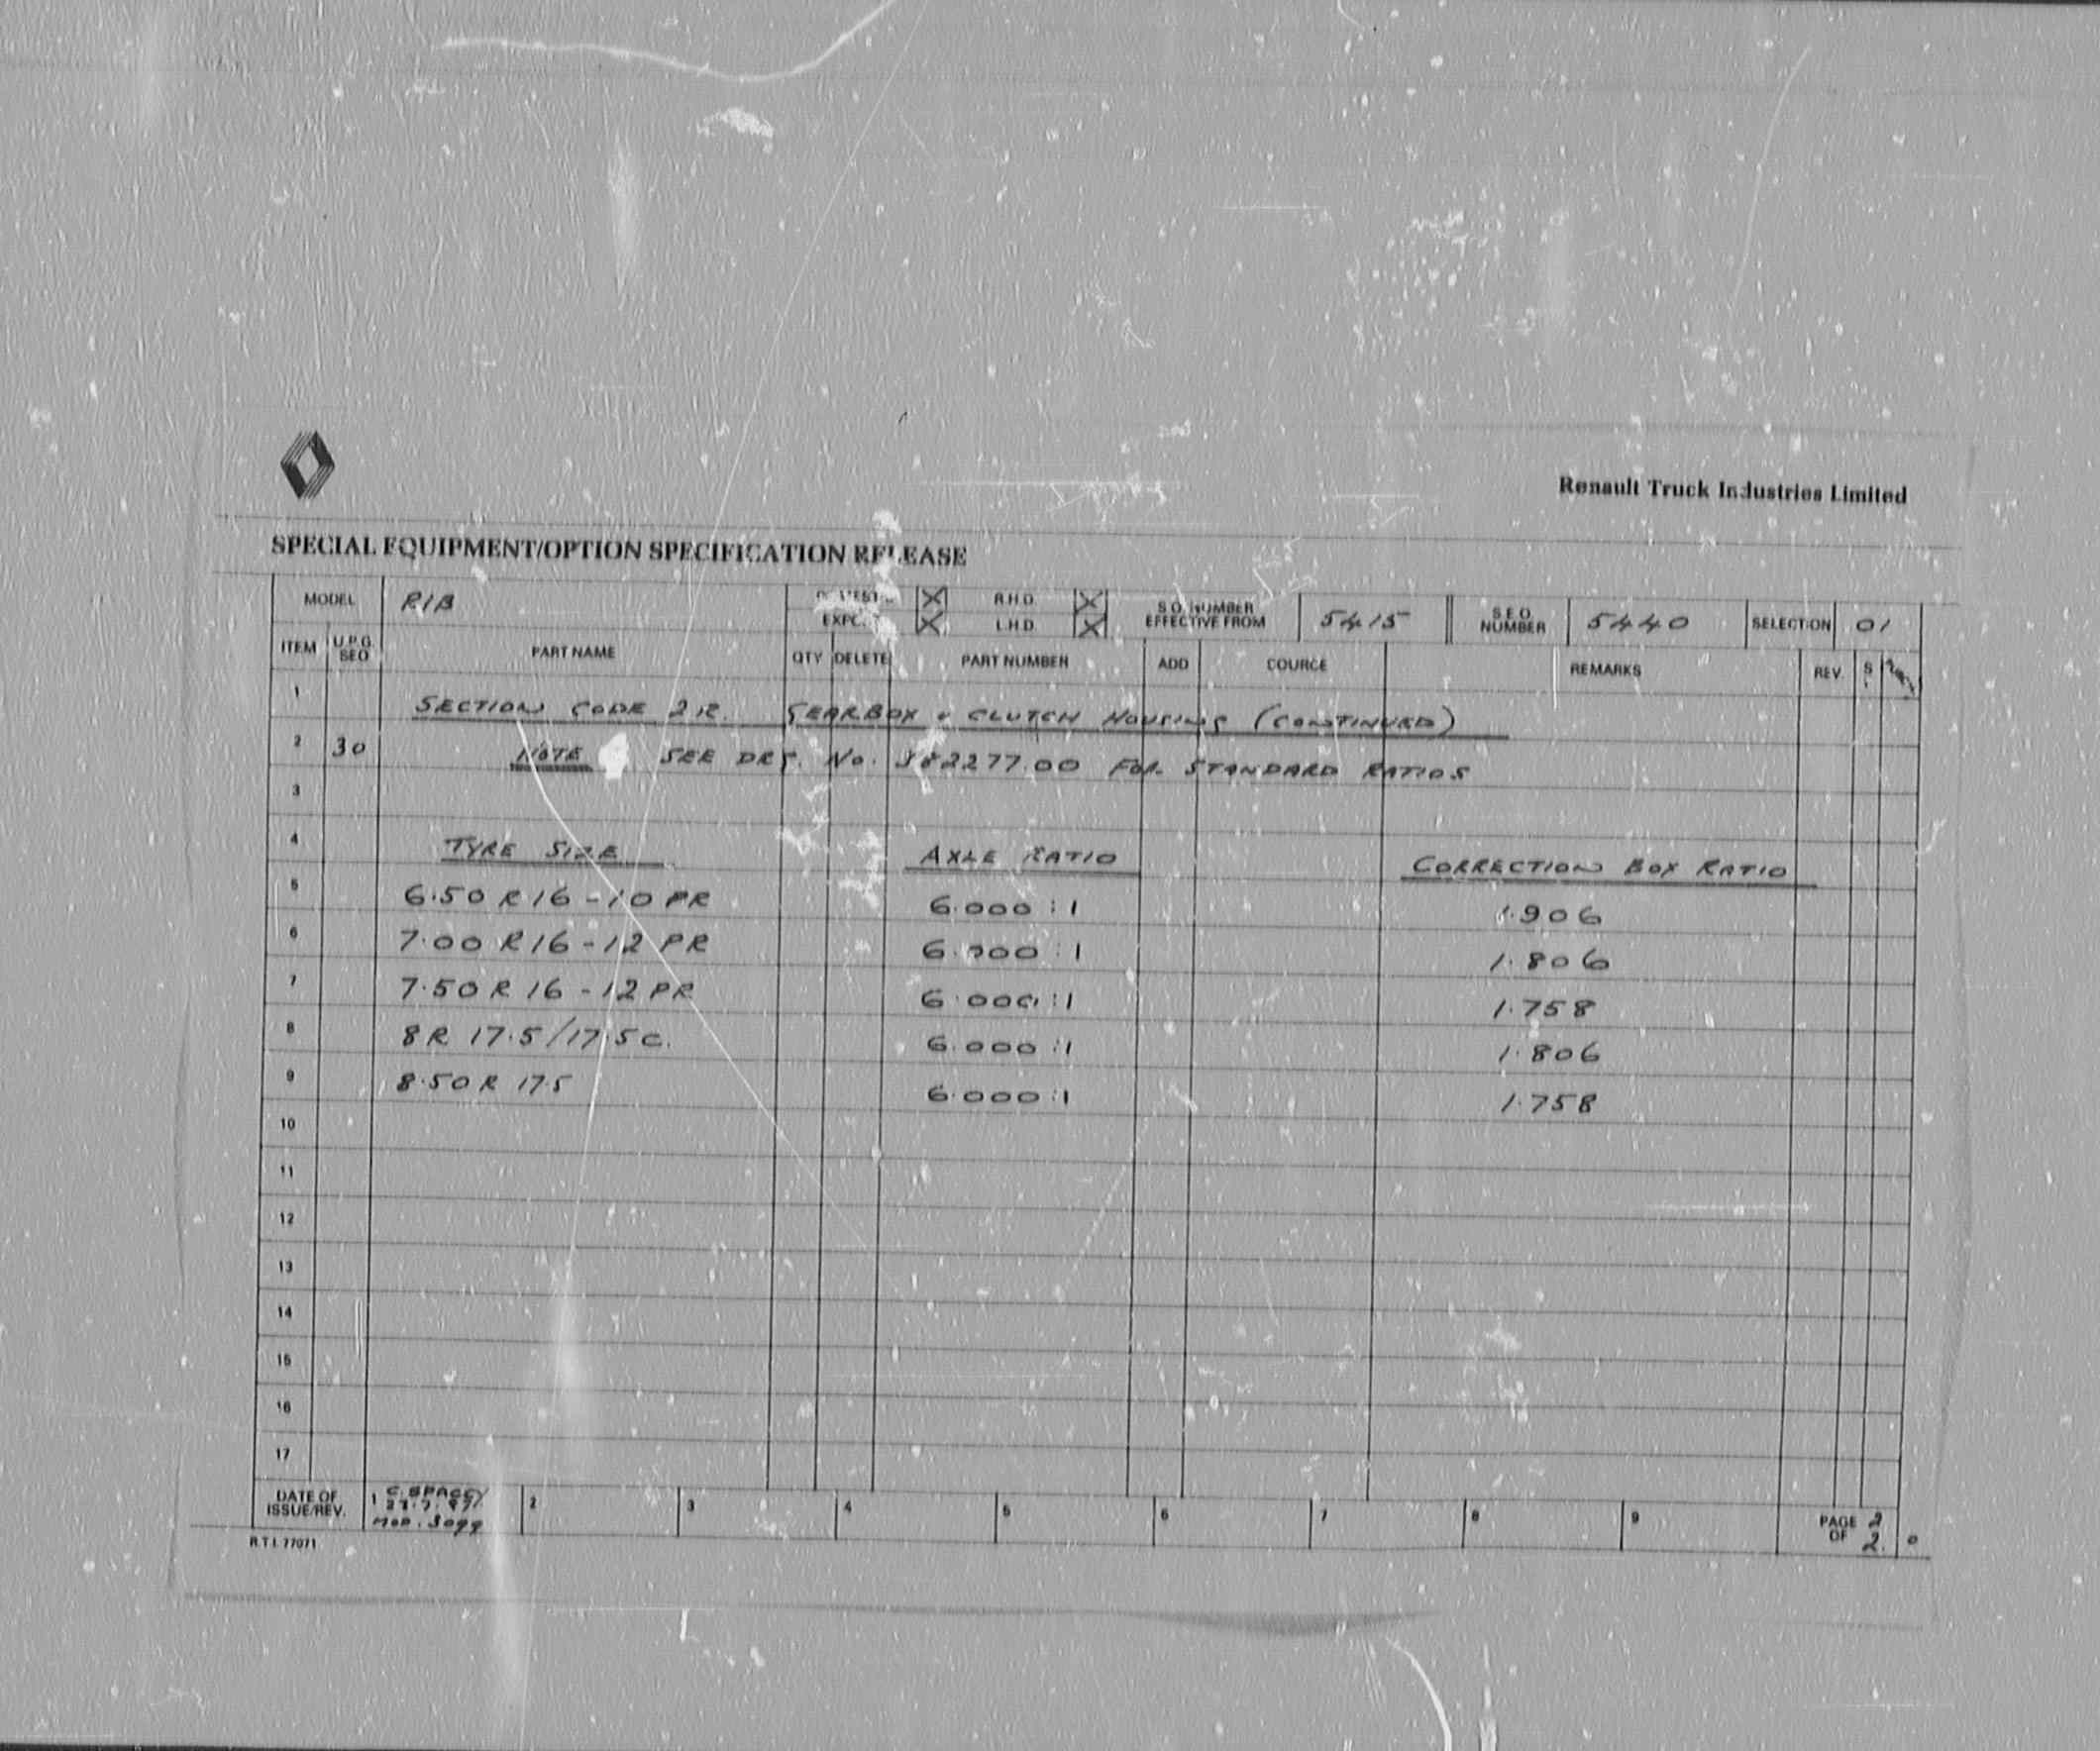 Renault Truck Industries Limited
SPECIAL EQUIPMENT/OPTION SPECIFICATION RELEASE
MODEL R1B R.H.D. X S.O. NUMBER EFFECTIVE FROM 5415 S.E.O. NUMBER 5440 SELECTION 01
X L.H.D. X
ITEM U.P.G. SEQ PART NAME QTY DELETE PART NUMBER ADD SOURCE REMARKS REV.
1 SECTION CODE 2R. GEARBOX & CLUTCH HOUSING (CONTINUED)
2 30 NOTE SEE DRG. No. 582277.00 FOR STANDARD RATIOS
3
4 TYRE SIZE AXLE RATIO CORRECTION BOX RATIO
5 6.50 R 16 - 10 PR 6.000 : 1 1.906
6 7.00 R 16 - 12 PR 6.000 : 1 1.806
7 7.50 R 16 - 12 PR 6.000 : 1 1.758
8 8R 17.5/17.5C. 6.000 : 1 1.806
9 8.50 R 17.5 6.000 : 1 1.758
10
11
12
13
14
15
16
17
DATE OF ISSUE/REV. 1 C. SPACEY 2 3 4 5 6 7 8 9 PAGE 2 OF 2.
MOD. 3099
R.T.I. 77071